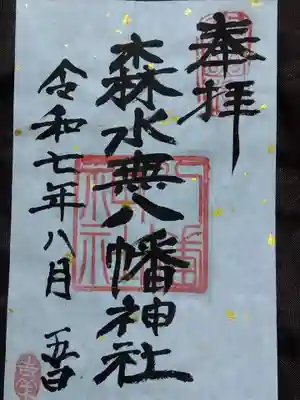 奉拝
森水無八幡神社
令和七年八月 五日